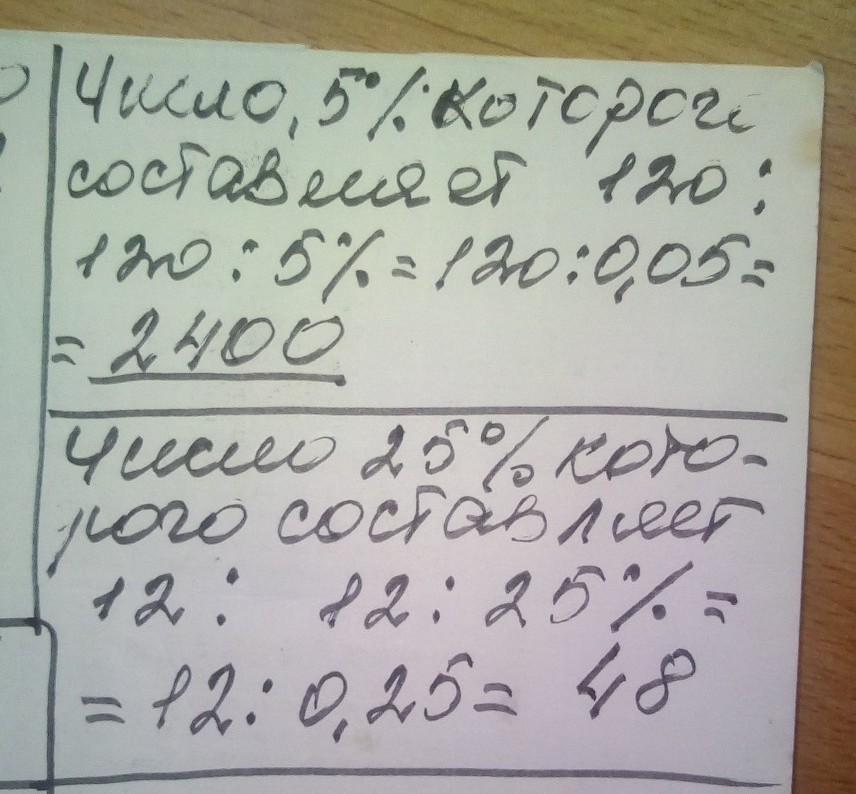 Число, 5% которого
составляет 120:
120 : 5% = 120 : 0,05 =
= 2400
Число 25% кото-
рого составляет
12: 12 : 25% =
= 12 : 0,25 = 48